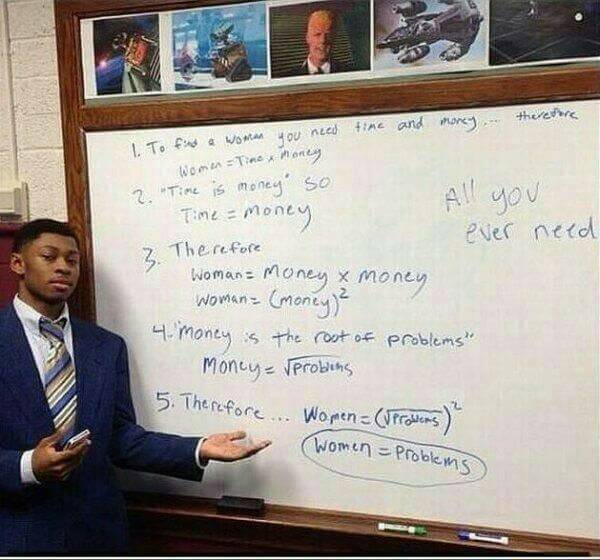 1. To find a woman you need time and money... therefore
Women = Time x Money
2. "Time is money" so
Time = Money
All you
ever need
3. Therefore
Woman = Money x money
Woman = (money)²
4. "Money is the root of problems"
Money = √Problems
5. Therefore... Women = (√Problems)²
Women = Problems